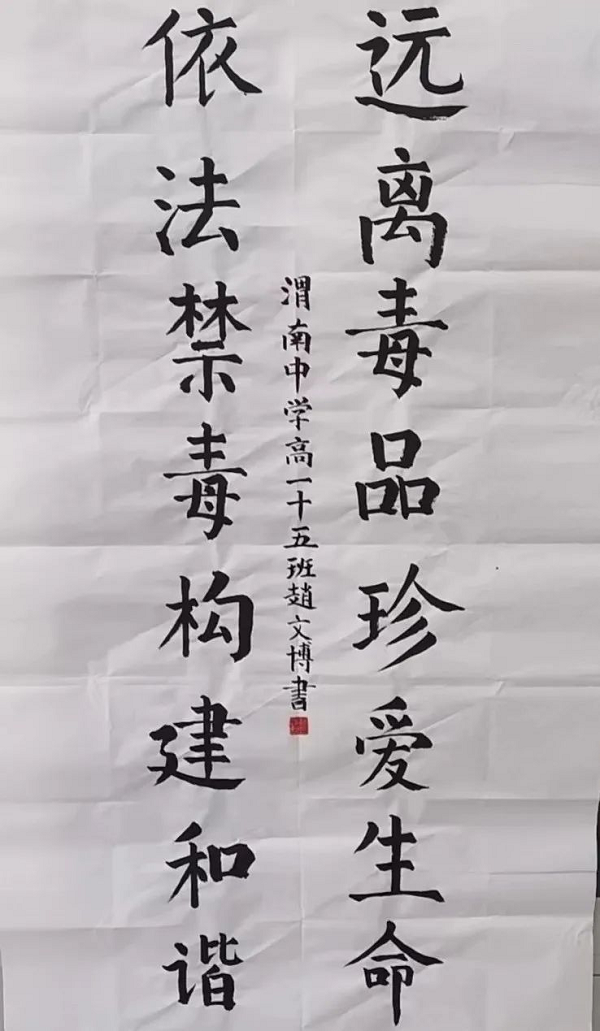 远离毒品珍爱生命
依法禁毒构建和谐
渭南中学高一十五班趙文博書